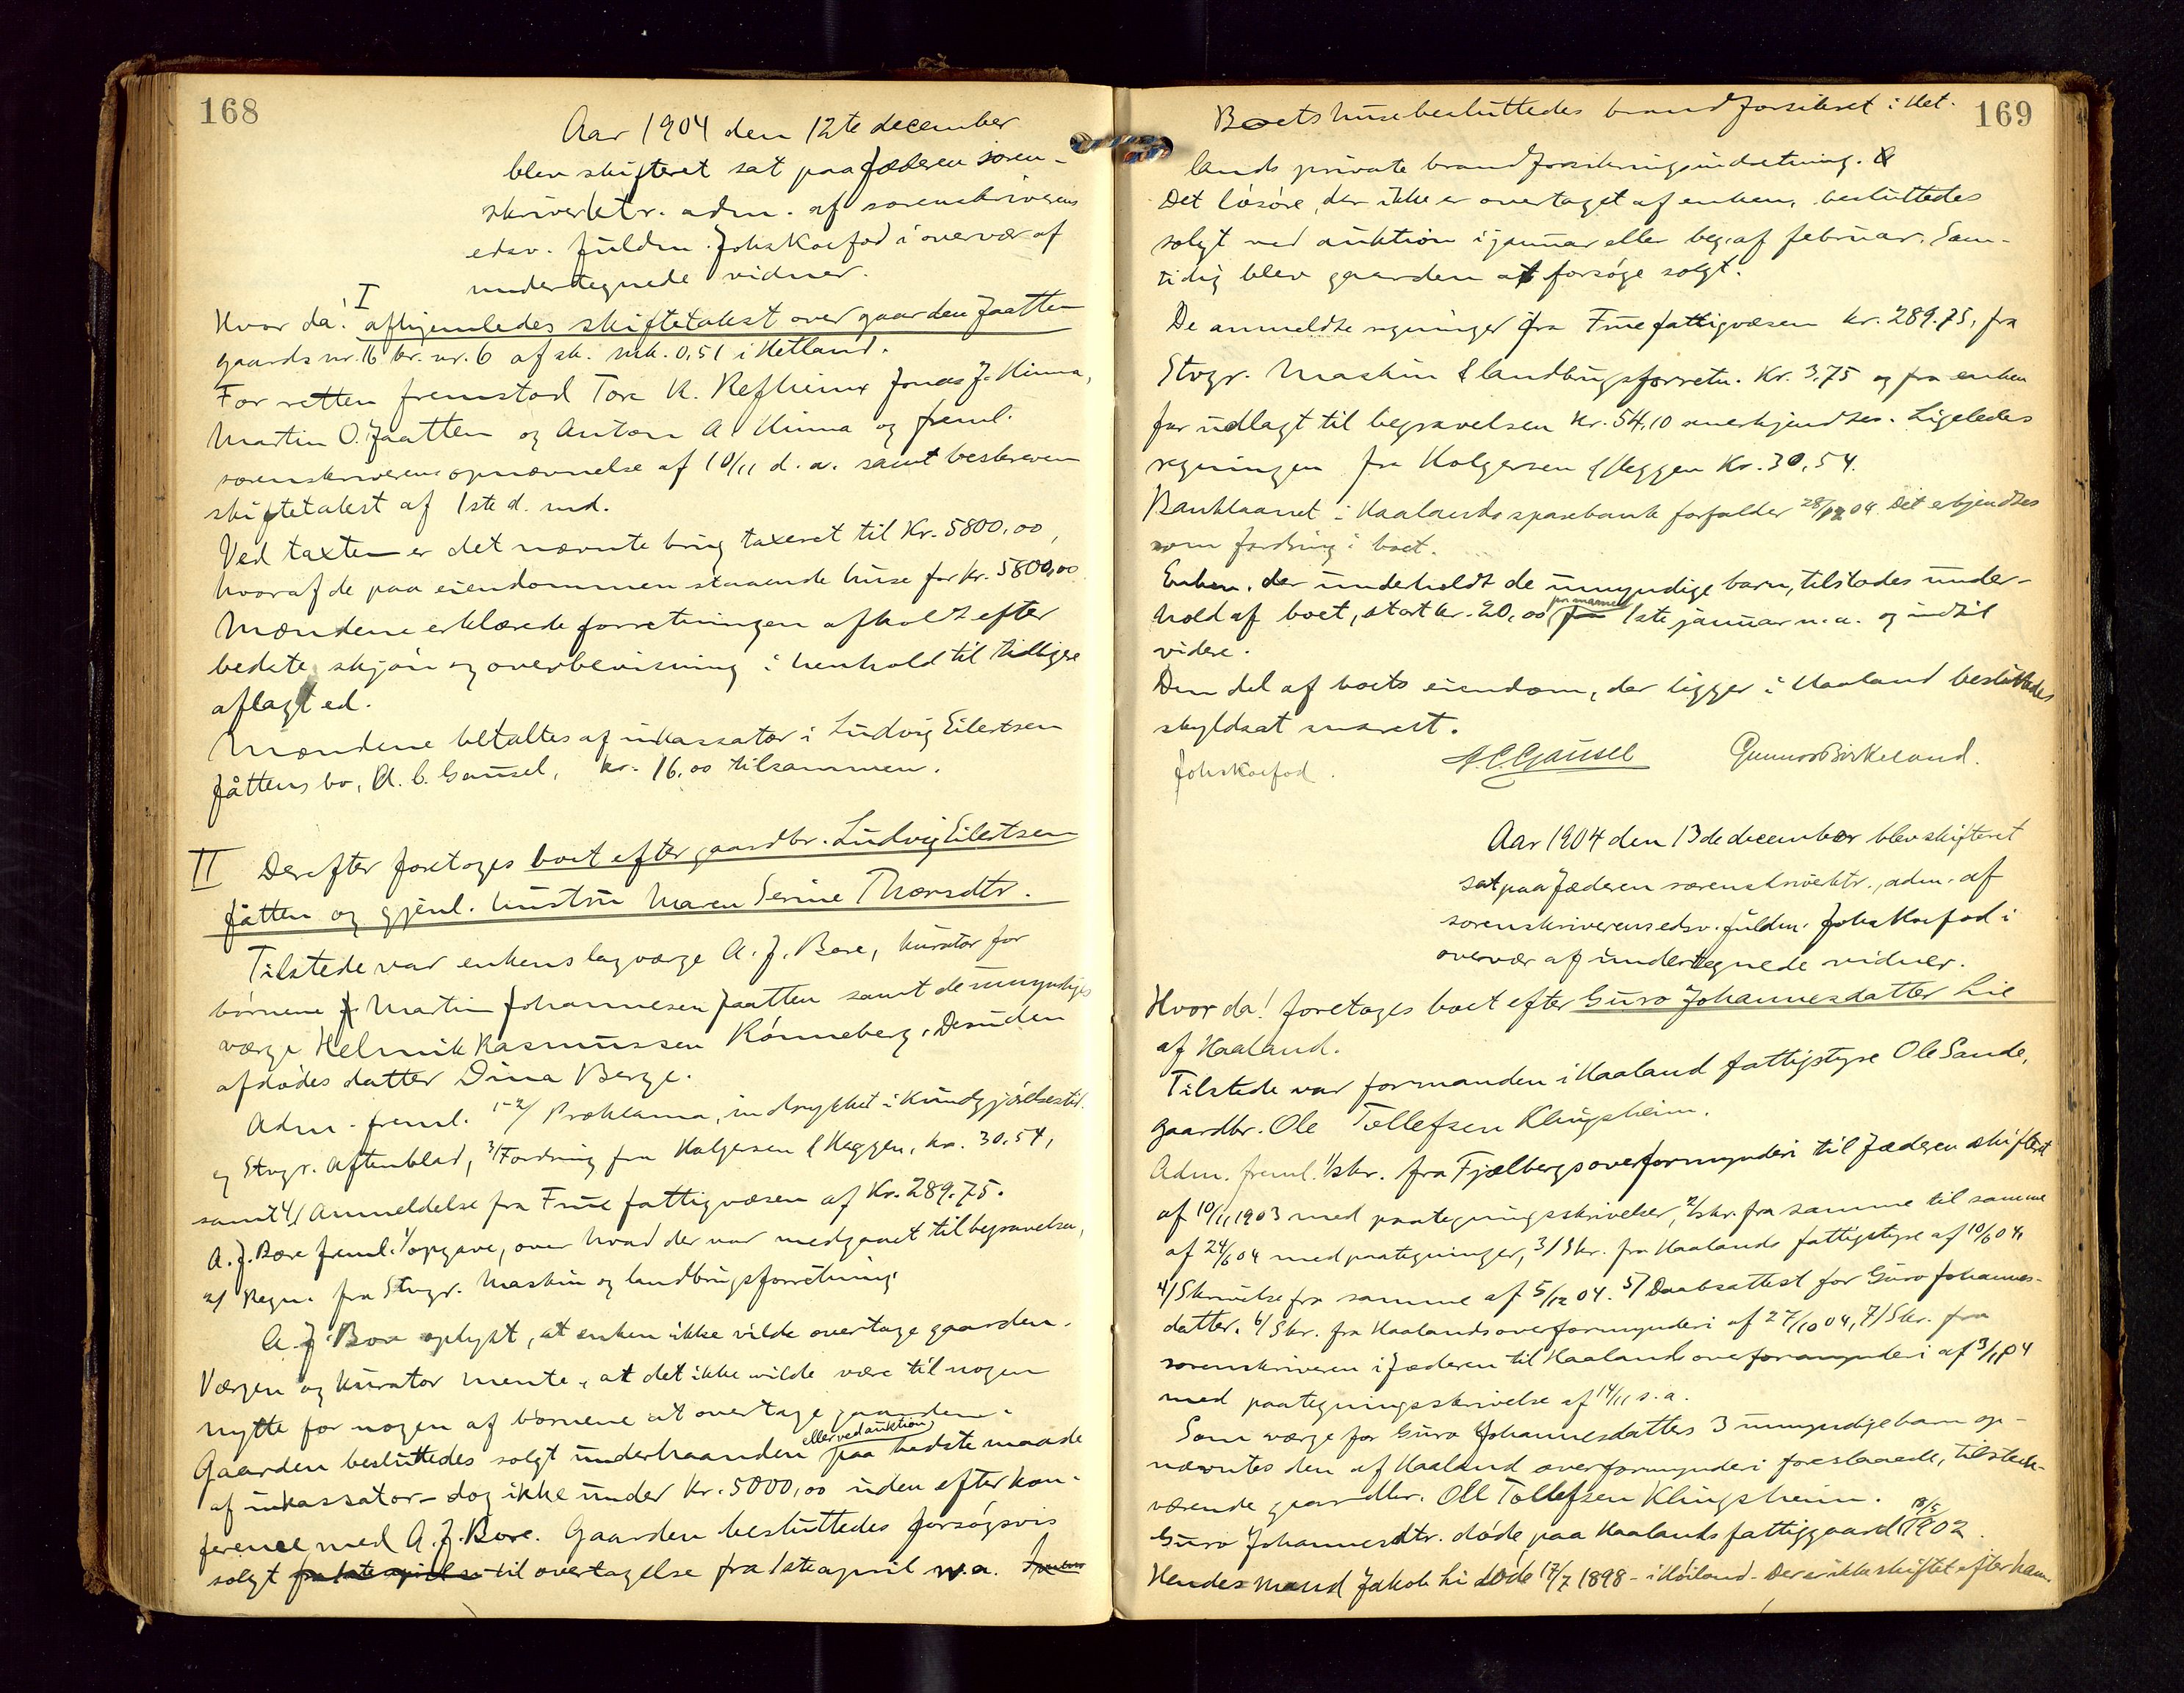 168
Aar 1904 den 12te december
blev skifteret sat paa Jæderen soren-
skriverktr. adm. af sorenskriverens
edsv. fuldm. Johs Koefod i overvær af
undertegnede vidner.
I
Hvor da! afhjemledes skiftetakst over gaarden Jaatten
gaards nr. 16 br. nr. 6 af sk. mk. 0,51 i Hetland.
For retten fremstod Tore K. Refheim, Jonas J. Hinna,
Martin O. Jaatten og Anton A. Hinna og freml.
sorenskriverens opnævnelse af 10/11 d. a. samt beskreven
skiftetakst af 1ste d. md.
Ved taxten er det nævnte brug taxeret til Kr. 5800,00,
hvoraf de paa eiendommen staaende huse for kr. 5800,00
Mændene erklærede forretningen afholdt efter
bedste skjøn og overbevisning i henhold til tidligere
aflagt ed.
Mændene betaltes af inkassator i Ludvig Eilertsen
Jåttens bo, A. C. Gausel, kr. 16,00 tilsammen.
II Derefter foretoges boet efter gaardbr. Ludvig Eilertsen
Jåtten og gjenl. hustru Maren Serine Thorsdtr.
Tilstede var enkens lagværge A. J. Bore, kurator for
børnene Martin Johannesen Jaatten samt de umyndiges
værge Helmik Rasmussen Rønneberg. Desuden
afdødes datter Dina Berge.
Adm. freml. 1-2/ Proklama, indrykket i Kundgjørelsestid.
og Stvgr. Aftenblad, 3/ Fordring fra Holgersen & Heggen, kr. 30,54,
samt 4/ Anmeldelse fra Frue fattigvæsen af Kr. 289.75.
A. J. Bore freml. 1/ opgave, over hvad der var medgaaet til begravelsen,
2/ Regn. fra Stvgr. Maskin og landbrugsforretning.
A. J. Bore oplyst, at enken ikke vilde overtage gaarden.
Værgen og kurator mente, at det ikke vilde være til nogen
nytte for nogen af børnene at overtage gaarden.
eller ved auktion
Gaarden besluttedes solgt underhaanden paa bedste maade
af inkassator – dog ikke under Kr. 5000,00 uden efter kon-
ference med A. J. Bore. Gaarden besluttedes forsøgsvis
solgt fra 1ste april til overtagelse fra 1ste april n. a.
169
Boets huse besluttedes brandforsikret i Het-
lands private brandforsikringsindretning.
Det løsøre, der ikke er overtaget af enken, besluttedes
solgt ved auktion i januar eller beg. af februar. Sam-
tidig blev gaarden at forsøge solgt.
De anmeldte regninger fra Frue fattigvæsen kr. 289.75, fra
Stvgr. Maskin & landbrugsforretn. Kr. 3,75 og fra enken
for udlagt til begravelsen Kr. 54,10 anerkjendtes. Ligeledes
regningen fra Holgersen & Heggen Kr. 30,54.
Banklaanet i Haalands sparebank forfalder 28/12 04. Det erkjendtes
som fordring i boet.
Enken, der underholdt de umyndige barn, tilstodes under-
pr. maaned
hold af boet, stort kr. 20,00 fra 1ste januar n. a. og indtil
videre.
Den del af boets eiendom, der ligger i Haaland besluttedes
skyldsat snarest.
Johs Koefod. A. C. Gausel Gunnar Birkeland.
Aar 1904 den 13de december blev skifteret
sat paa Jæderen sorenskriverktr., adm. af
sorenskriverens edsv. fuldm. Johs Koefod i
overvær af undertegnede vidner.
Hvor da! foretoges boet efter Guro Johannesdatter Lie
af Haaland.
Tilstede var formanden i Haaland fattigstyre Ole Sande,
gaardbr. Ole Tollefsen Klingsheim.
Adm. freml. 1/ skr. fra Fjælbergs overformynderi til Jæderen skifteret
af 10/11 1903 med paategningsskrivelser, 2/ skr. fra samme til samme
af 24/6 04 med paategninger, 3/ Skr. fra Haalands fattigstyre af 10/6 04,
4/ Skrivelse fra samme af 5/12 04. 5/ Daabsattest for Guro Johannes-
datter. 6/ Skr. fra Haalands overformynderi af 27/10 04, 7/ Skr. fra
sorenskriveren i Jæderen til Haalands overformynderi af 3/11 04
med paategningsskrivelse af 14/11 s. a.
Som værge for Guro Johannesdatters 3 umyndige barn op-
nævntes den af Haaland overformynderi foreslaaede, tilstede-
værende gaardbr. Ole Tollefsen Klingsheim.
Guro Johannesdtr. døde paa Haalands fattiggaard 1902.
Hendes mand Jakob Li døde 17/7 1898 – i Høiland – Der er ikke skiftet efter ham.